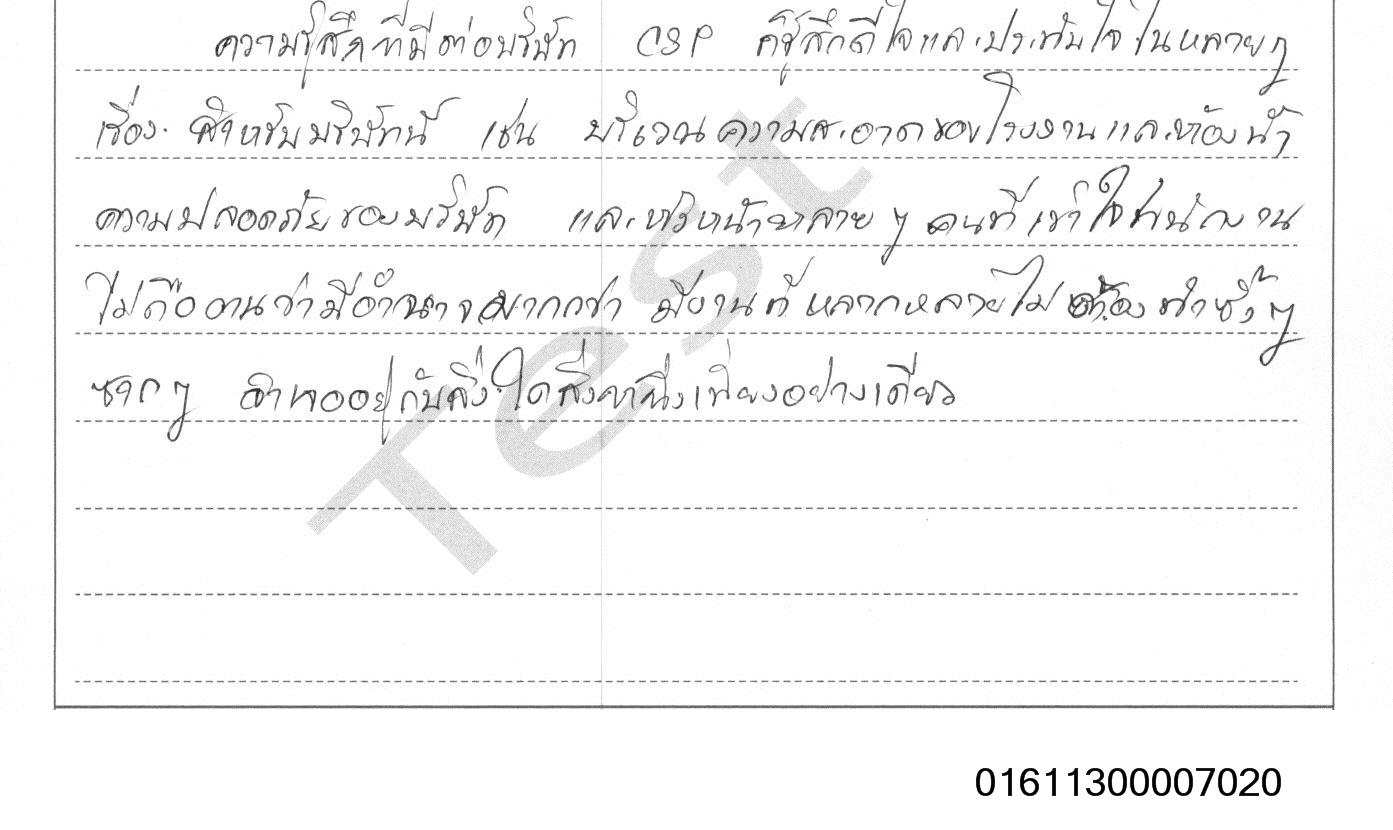 ความรู้สึกที่มีต่อบริษัท CSP ก็รู้สึกดีใจและประทับใจในหลายๆ
เรื่อง สำหรับบริษัทนี้ เช่น บริเวณความสะอาดของโรงงานและห้องน้ำ
ความปลอดภัยของบริษัท และหัวหน้าหลายๆ คนที่เข้าใจพนักงาน
ไม่ถือตนว่ามีอำนาจมากกว่า มีงานที่หลากหลายไม่ต้องทำซ้ำๆ
ซากๆ จำเจอยู่กับสิ่งใดสิ่งหนึ่งเพียงอย่างเดียว
Test
01611300007020